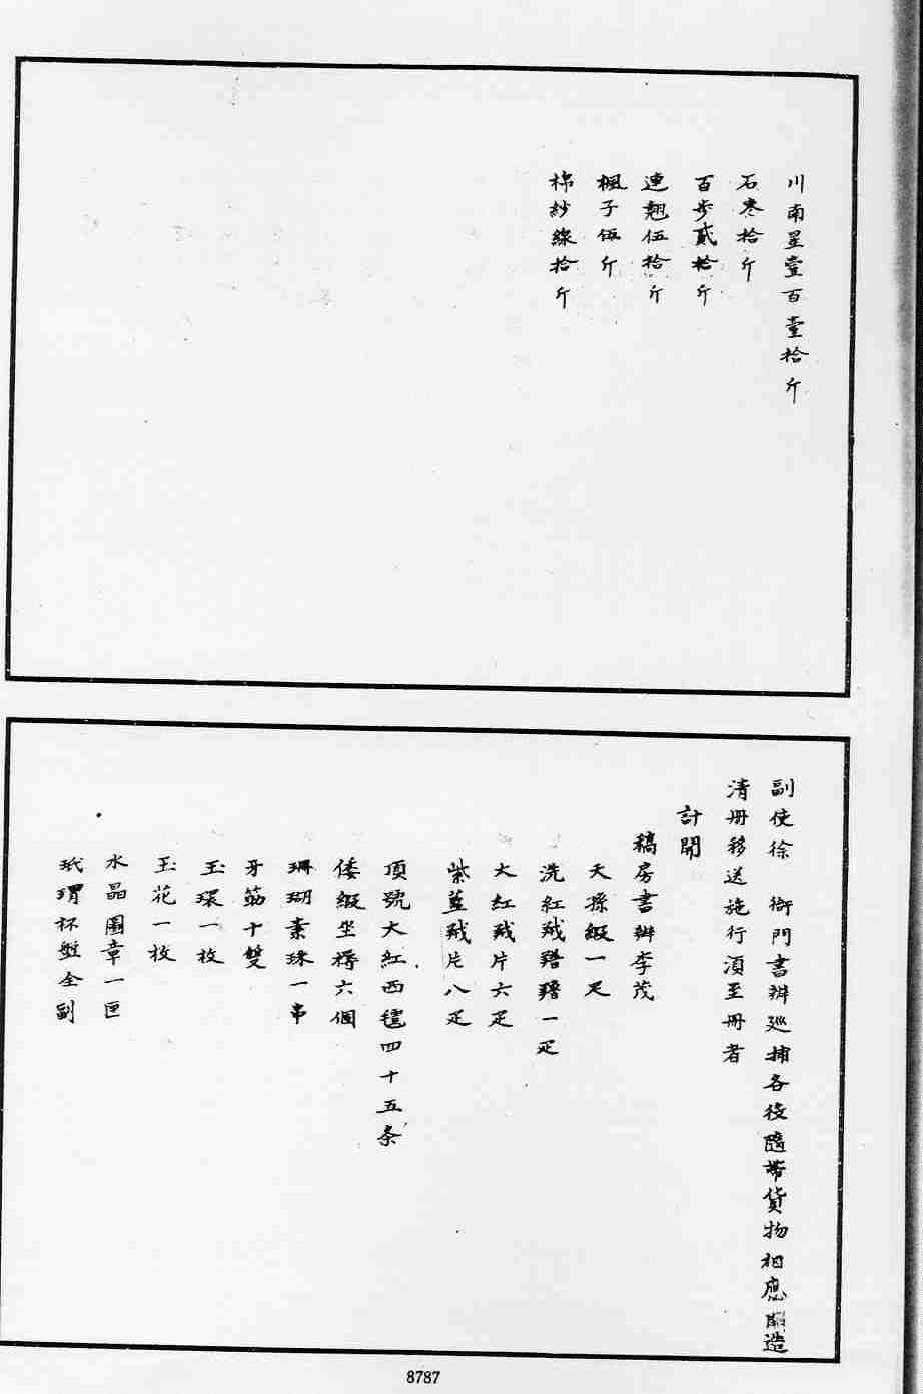 川南星壹百壹拾斤
石枣拾斤
百步貳拾斤
連翹伍拾斤
楓子伍斤
棉紗線拾斤
副使徐 衙門書辦巡捕各役隨帶貨物相應開造
清冊移送施行須至冊者
計開
稿房書辦李茂
天孫緞一疋
洗紅羢 一疋
大紅羢片六疋
紫藍羢片八疋
頂號大紅西氊四十五条
倭緞坐褥六個
珊瑚素珠一串
牙筯十雙
玉環一枚
玉花一枚
水晶圖章一匣
玳瑁杯盤全副
8787